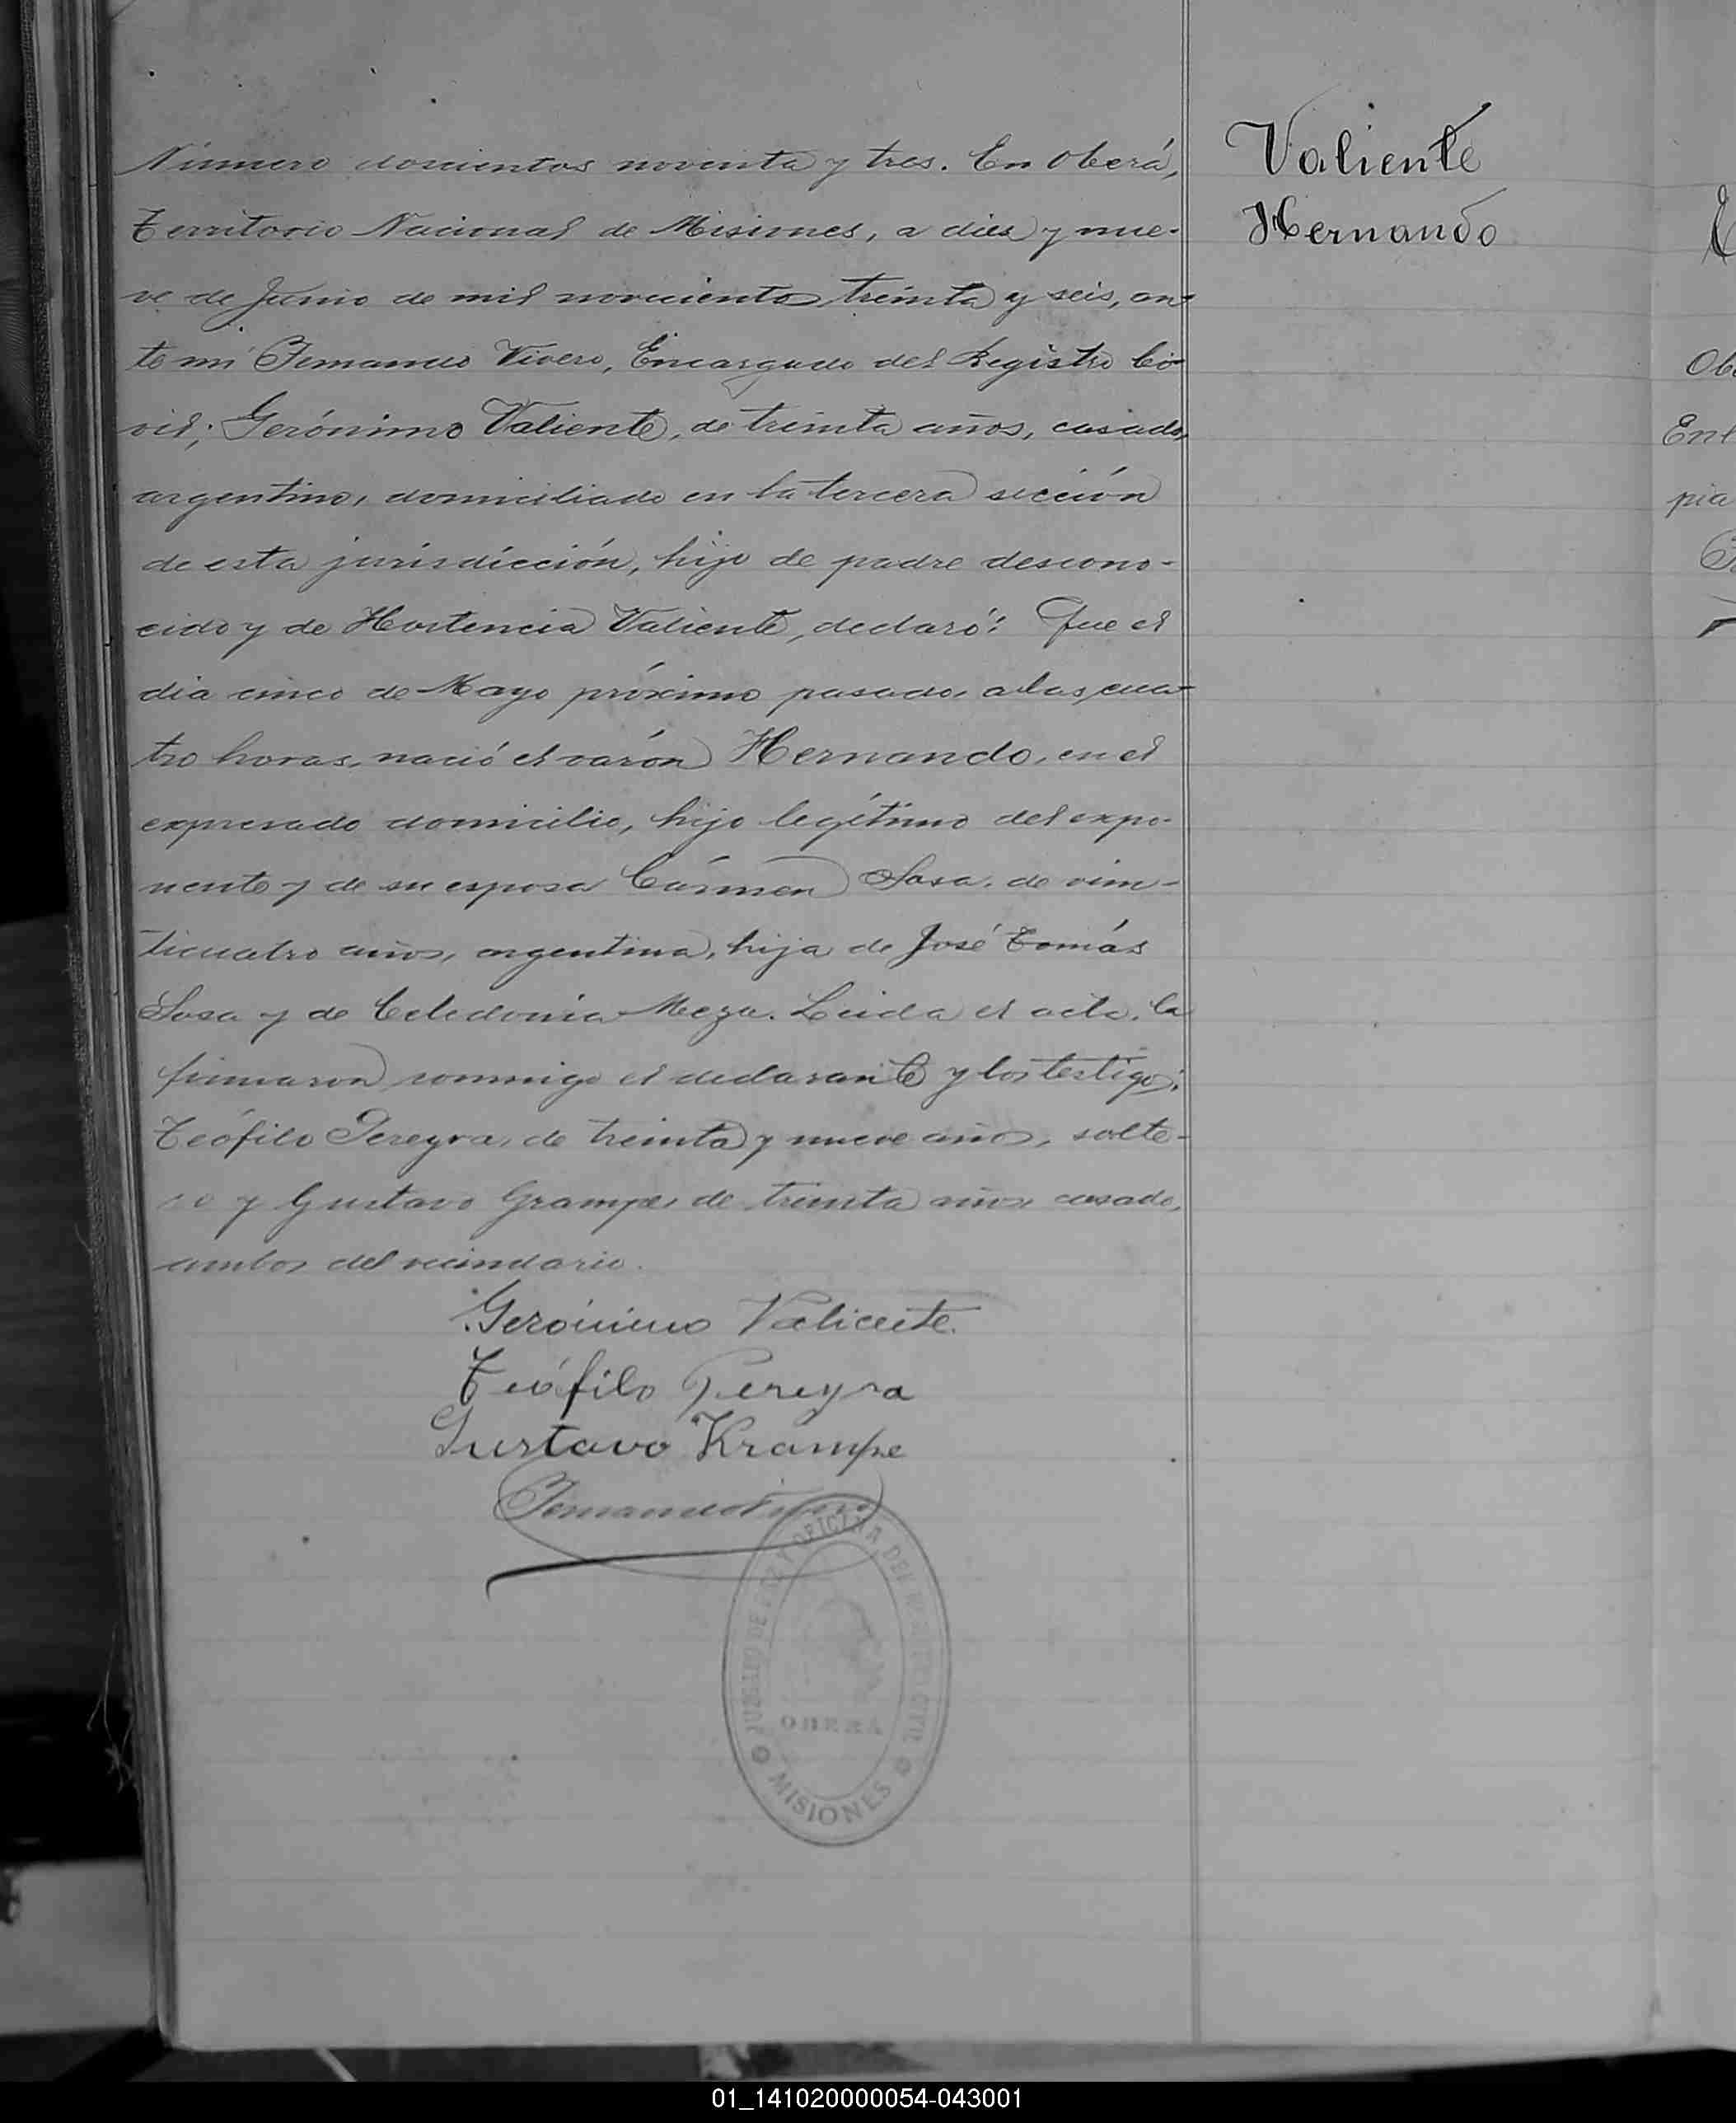 Número doscientos noventa y tres. En Oberá,
Territorio Nacional de Misiones, a diez y nue-
ve de Junio de mil novecientos treinta y seis, an-
te mi Fernando Vivero, Encargado del Registro Ci-
vil; Gerónimo Valiente, de treinta años, casado,
argentino, domiciliado en la tercera sección
de esta jurisdicción, hijo de padre descono-
cido y de Hortencia Valiente, declaró: Que el
dia cinco de Mayo próximo pasado, a las cua-
tro horas, nació el varón Hernando, en el
expresado domicilio, hijo legítimo del expo-
nente y de su esposa Cármen Sosa, de vein-
ticuatro años, argentina, hija de José Tomás
Sosa y de Celedonia Meza. Leida el acta, la
firmaron conmigo el declarante y los testigos:
Teófilo Pereyra, de treinta y nueve años, solte-
ro y Gustavo Grampe, de treinta años, casado,
ambos del vecindario.
Gerónimo Valiente.
Teófilo Pereyra
Gustavo Krampe
Fernando Vivero
JUZGADO DE PAZ Y OFICINA DEL REGISTRO CIVIL
OBERÁ
MISIONES
Valiente
Hernando
Obe
Ent
pia
01_141020000054-043001